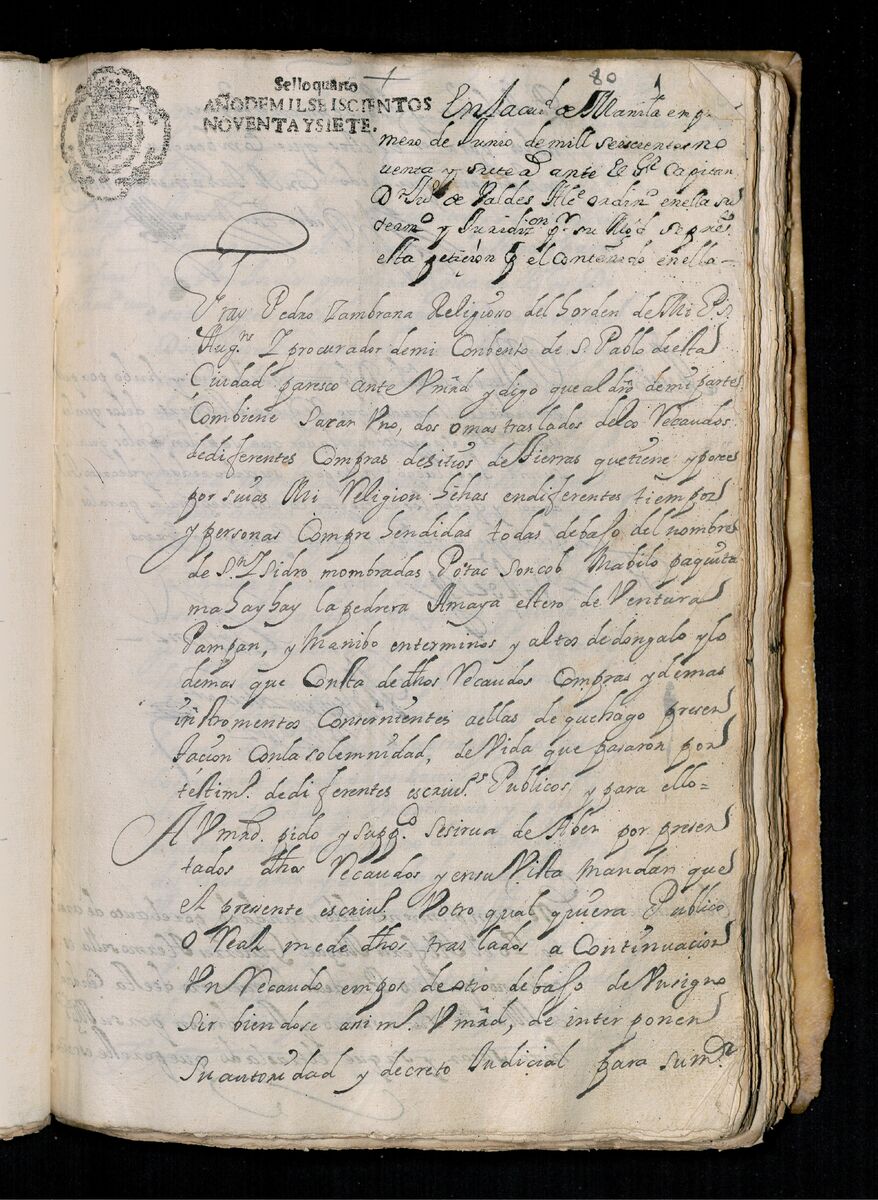 80
Sello quarto
AÑO DE MIL SEISCIENTOS
NOVENTA Y SIETE.
En la ciud de Manila en pri
mero de Junio de mill seiscientos no
uenta y siete ad ante El Gl Capitan
Dn Juo de Valdes Alce ordinro en ella su
termo y Juridizon pr su Magd se preso
esta petiçion pr el contenido en ella
Fray Pedro Zambrana Religioso del horden de Mi P. S.
Augns Y procurador de mi Conbento de S. Pablo de esta
Ciudad paresco ante Vmrd y digo que al dro de mi parte
Combiene sacar Vno, dos o mas traslados de los Recaudos
de diferentes Compras de sitios de tierras que tiene y posee
por suias Mi Religion hechas en diferentes tiempos
y personas Comprehendidas todas debaso del nombre
de Sn Ysidro nombradas Potac Soncob Mabilo paquita
mahayhay la pedrera Amaya estero de Ventura
Pampan, y Manibo en terminos y altos de dongalo y lo
demas que Consta de dhos Recaudos Compras y demas
instromentos Consernientes a ellas de que hago presen
tacion Con la solemnidad, de Vida que pasaron por
testim. de diferentes escriuos Publicos, y para ello
A Vmrd. pido y suppco se sirua de Aber por presen
tados dhos Recaudos y en su Vista Mandar que
el presente escriuo Votro qual quiera Publico
o Real me de dhos traslados a Continuacion
Vn Recaudo em pos de otro debaso de Vn signo
sirbiendose asim. Vmrd, de interponer
Su autoridad y decreto Judicial para su mor